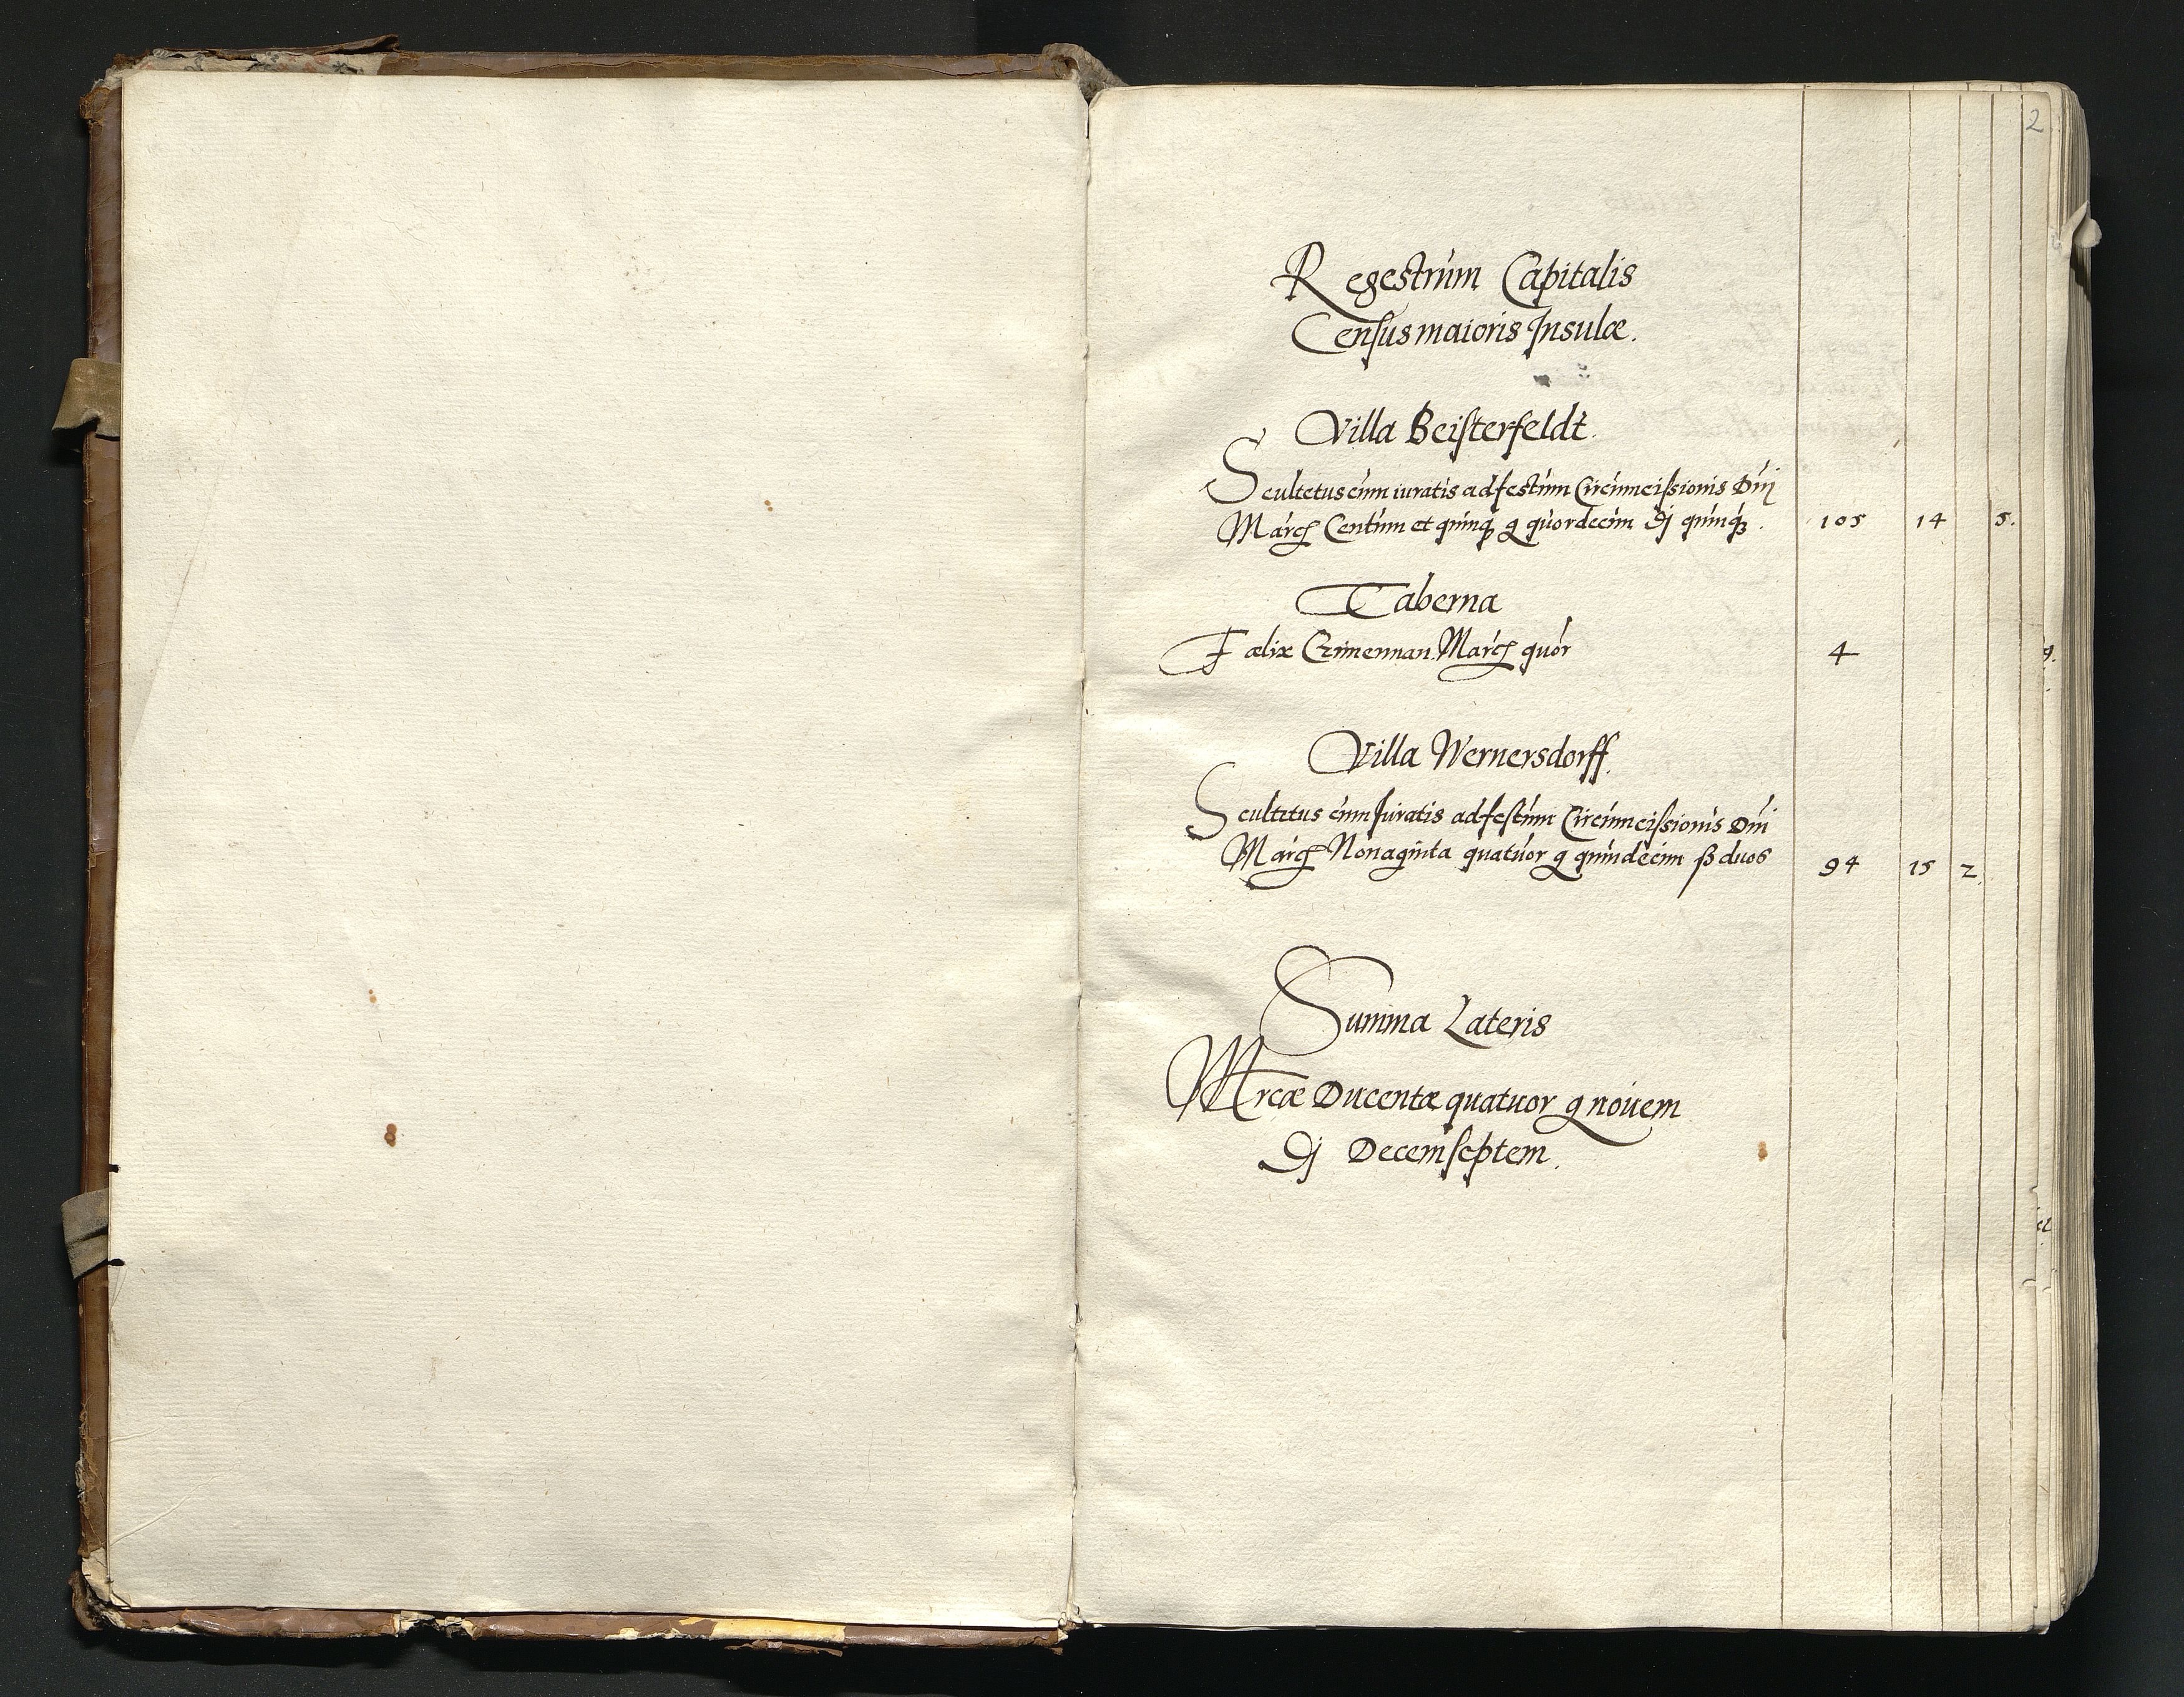 2
Regestrum Capitalis
Censusmaioris Insulæ.
Villa Beisterfeldt.
Scultetus cum iuratis ad festum Circumcissionis Dni
Marcs Centum et quinq; g quordecim dj quinq; . 105 14 5.
Taberna
Fælix Czimerman. Marcs quor 4
Villa Wernersdorff.
Scultetus cum Juratis ad festum Circumcissionis Dni
Marcs Nonaginta quatuor g quindecim ß duos 94 15 2.
Summa Lateris
Mrcæ Ducentæ quatuor g nouem
dj Decemseptem.